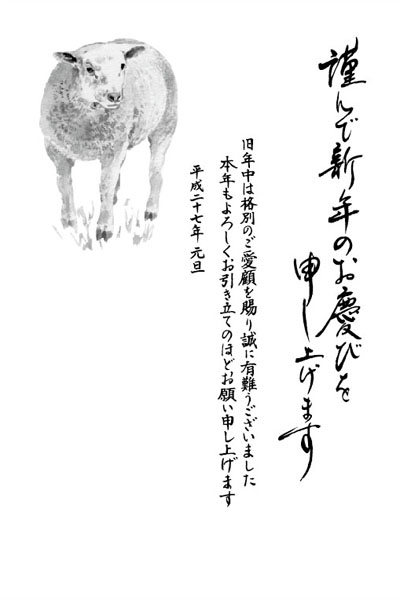 謹んで新年のお慶びを
申し上げます
旧年中は格別のご愛顧を賜り誠に有難うございました
本年もよろしくお引き立てのほどお願い申し上げます
平成二十七年 元旦